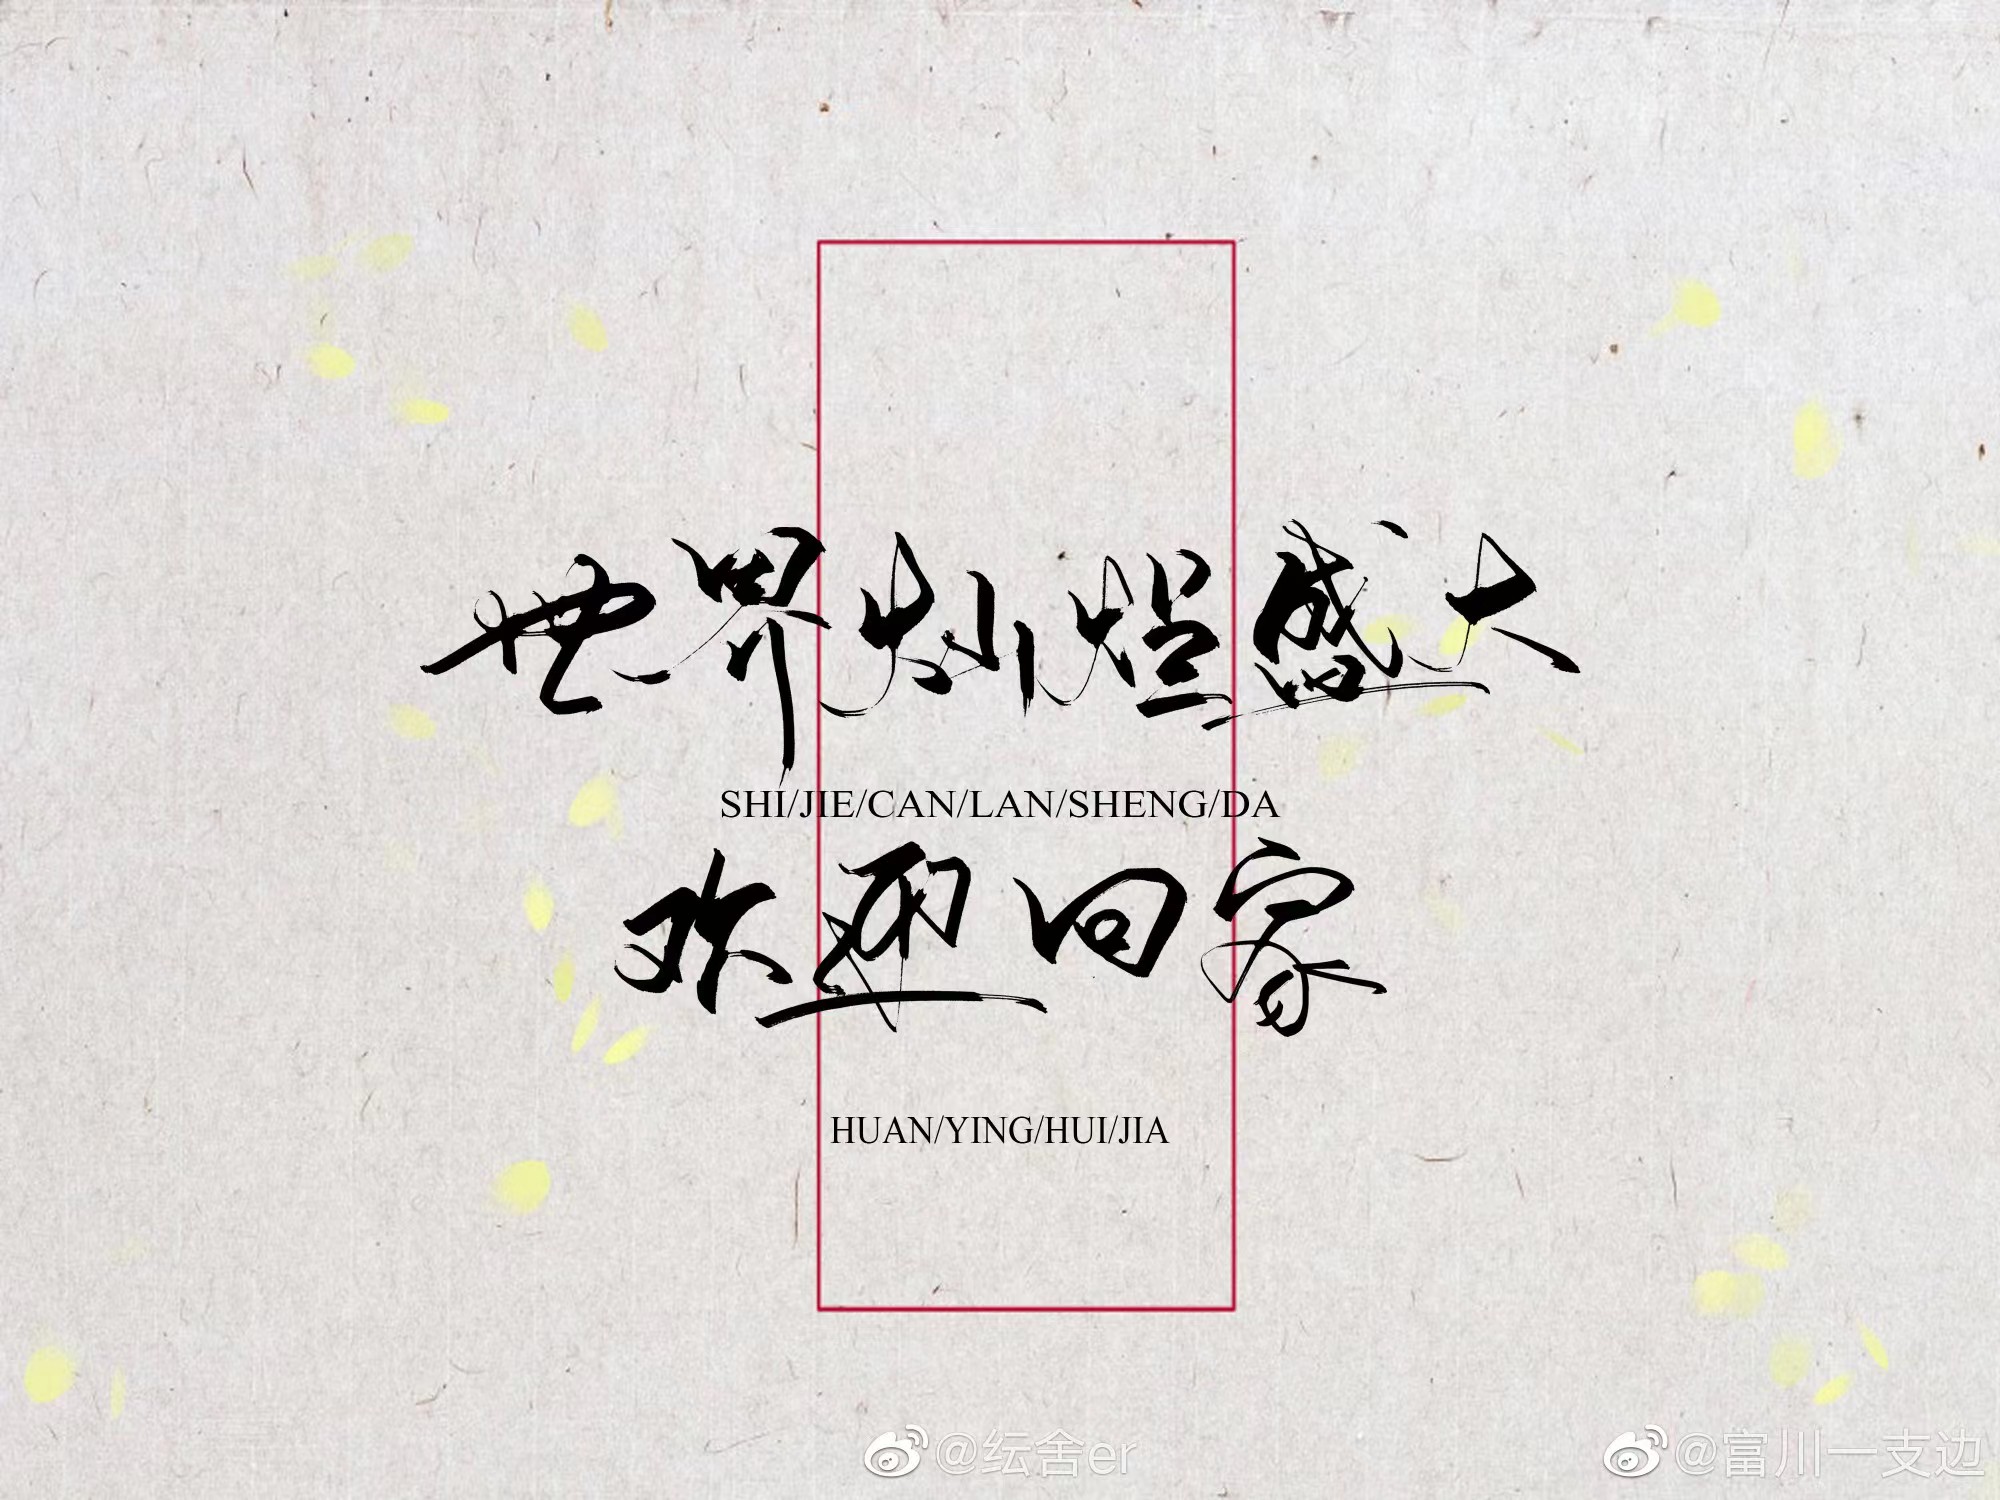 世界灿烂盛大
SHI/JIE/CAN/LAN/SHENG/DA
欢迎回家
HUAN/YING/HUI/JIA
@纭舍er
@富川一支边